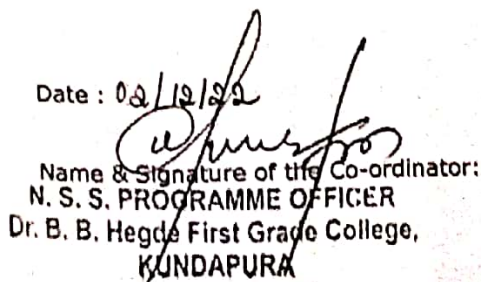 Date : 02/12/22
Name & Signature of the Co-ordinator:
N. S. S. PROGRAMME OFFICER
Dr. B. B. Hegde First Grade College,
KUNDAPURA